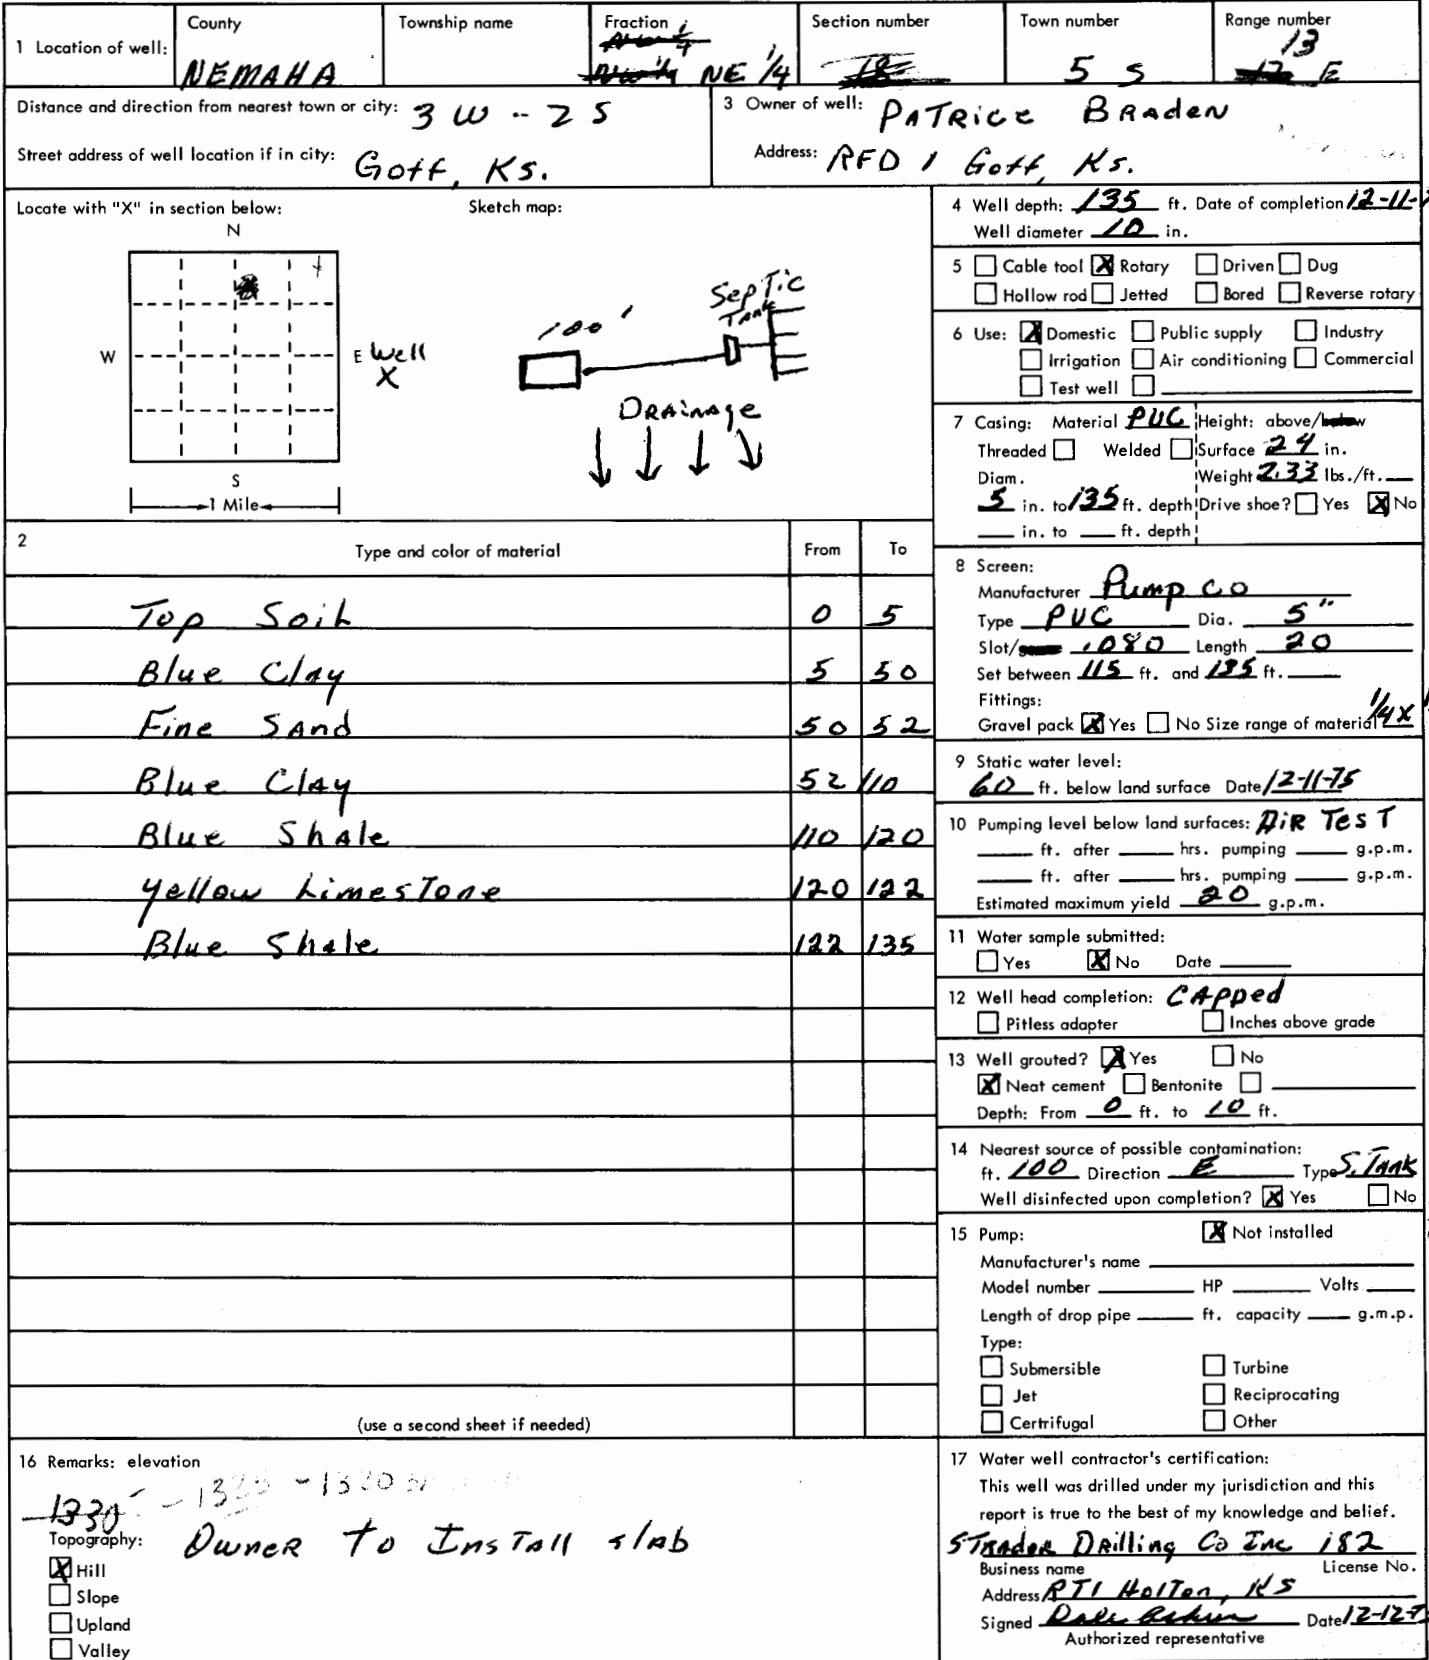 1 Location of well:
County
NEMAHA
Township name
Fraction
NE 1/4
Section number
18
Town number
5 S
Range number
13
E
Distance and direction from nearest town or city: 3 W -- 2 S
Street address of well location if in city: Goff, Ks.
3 Owner of well: PATRICK BRADEN
Address: RFD 1 Goff, Ks.
Locate with "X" in section below:
Sketch map:
N
W
E
S
1 Mile
Well
X
100'
Septic
Tank
DRAINAGE
4 Well depth: 135 ft. Date of completion 12-11-
Well diameter 10 in.
5 Cable tool X Rotary Driven Dug
Hollow rod Jetted Bored Reverse rotary
6 Use: X Domestic Public supply Industry
Irrigation Air conditioning Commercial
Test well
7 Casing: Material PVC Height: above/below
Threaded Welded Surface 24 in.
Diam. Weight 2.33 lbs./ft.
5 in. to 135 ft. depth Drive shoe? Yes X No
in. to ft. depth
8 Screen:
Manufacturer Pump Co
Type PVC Dia. 5"
Slot/ .080 Length 20
Set between 115 ft. and 135 ft.
Fittings:
Gravel pack X Yes No Size range of material 1/4 X
9 Static water level:
60 ft. below land surface Date 12-11-75
10 Pumping level below land surfaces: AIR TEST
ft. after hrs. pumping g.p.m.
ft. after hrs. pumping g.p.m.
Estimated maximum yield 20 g.p.m.
11 Water sample submitted:
Yes X No Date
12 Well head completion: CAPPED
Pitless adapter Inches above grade
13 Well grouted? X Yes No
X Neat cement Bentonite
Depth: From 0 ft. to 10 ft.
14 Nearest source of possible contamination:
ft. 100 Direction E Type S. Tank
Well disinfected upon completion? X Yes No
15 Pump: X Not installed
Manufacturer's name
Model number HP Volts
Length of drop pipe ft. capacity g.m.p.
Type:
Submersible Turbine
Jet Reciprocating
Certrifugal Other
2 Type and color of material From To
Top Soil 0 5
Blue Clay 5 50
Fine Sand 50 52
Blue Clay 52 110
Blue Shale 110 120
Yellow Limestone 120 122
Blue Shale 122 135
(use a second sheet if needed)
16 Remarks: elevation
1330
Topography:
X Hill
Slope
Upland
Valley
Owner to Install slab
17 Water well contractor's certification:
This well was drilled under my jurisdiction and this
report is true to the best of my knowledge and belief.
STrader Drilling Co Inc 182
Business name License No.
Address RT1 Holton, KS
Signed Date 12-12-7
Authorized representative